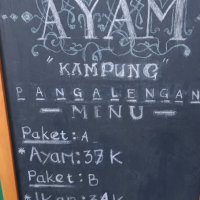 AYAM
"KAMPUNG"
PANGALENGAN
— MENU —
Paket : A
*Ayam : 37 K
Paket : B
*Ikan : 34 K